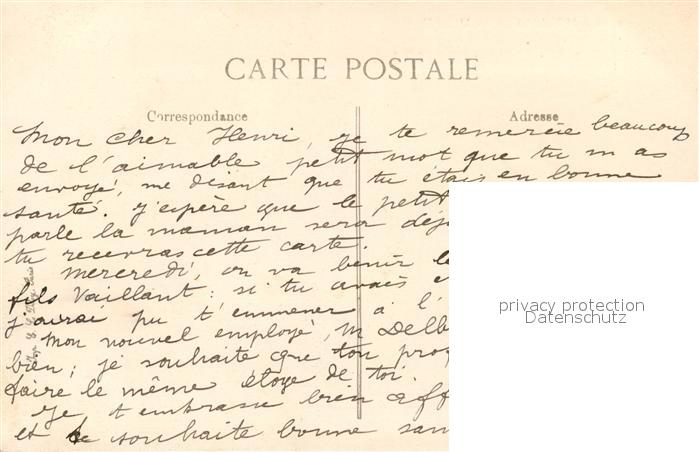 CARTE POSTALE
Correspondance
Adresse
Mon cher Henri, je te remercie beaucoup
de l'aimable petit mot que tu m as
envoyé, me disant que tu étais en bonne
santé. J'espère que le petit
parle la maman sera déj
tu recevras cette carte.
Mercredi, on va bénir le
fils Vaillant : si tu avais é
j'aurai pu t'emmener à l'é
Mon nouvel employé, M Delb
bien ; je souhaite que ton pro
faire le même éloge de toi.
Je t'embrasse bien aff
et te souhaite bonne san
privacy protection
Datenschutz